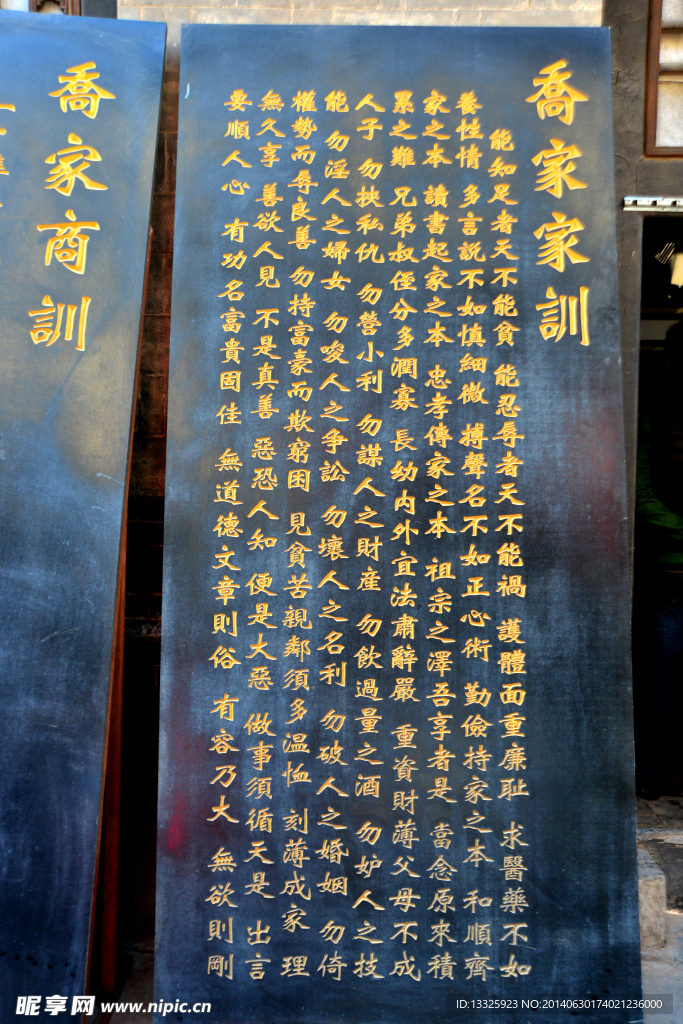 喬家家訓
能知足者天不能貧 能忍辱者天不能禍 護體面重廉耻 求醫藥不如
養性情 多言說不如慎細微 搏聲名不如正心術 勤儉持家之本 和順齊
家之本 讀書起家之本 忠孝傳家之本 祖宗之澤吾享者是 當念原來積
累之難 兄弟叔侄分多潤寡 長幼内外宜法肅辭嚴 重資財薄父母不成
人子 勿挾私仇 勿營小利 勿謀人之財産 勿飲過量之酒 勿妒人之技
能 勿淫人之婦女 勿唆人之争訟 勿壞人之名利 勿破人之婚姻 勿倚
權勢而辱良善 勿持富豪而欺窮困 見貧苦親鄰須多温恤 刻薄成家 理
無久享 善欲人見 不是真善 惡恐人知 便是大惡 做事須循天是 出言
要順人心 有功名富貴固佳 無道德文章則俗 有容乃大 無欲則剛
喬家商訓
昵享网 www.nipic.cn
ID:13325923 NO:20140630174021236000